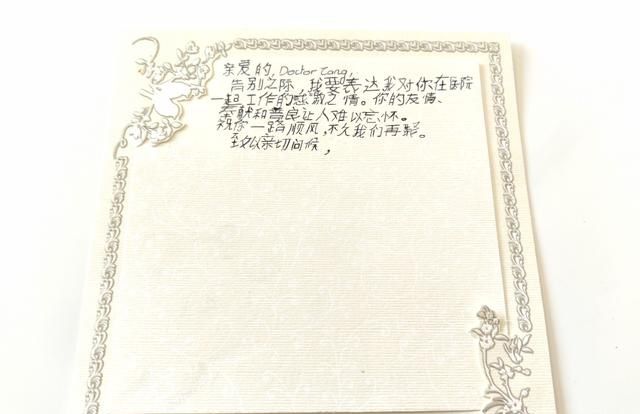 亲爱的, Doctor Tang,
告别之际，我要表达我对你在医院
一起工作的感激之情。你的友情、
奉献和善良让人难以忘怀。
祝你一路顺风，不久我们再聚。
致以亲切问候，